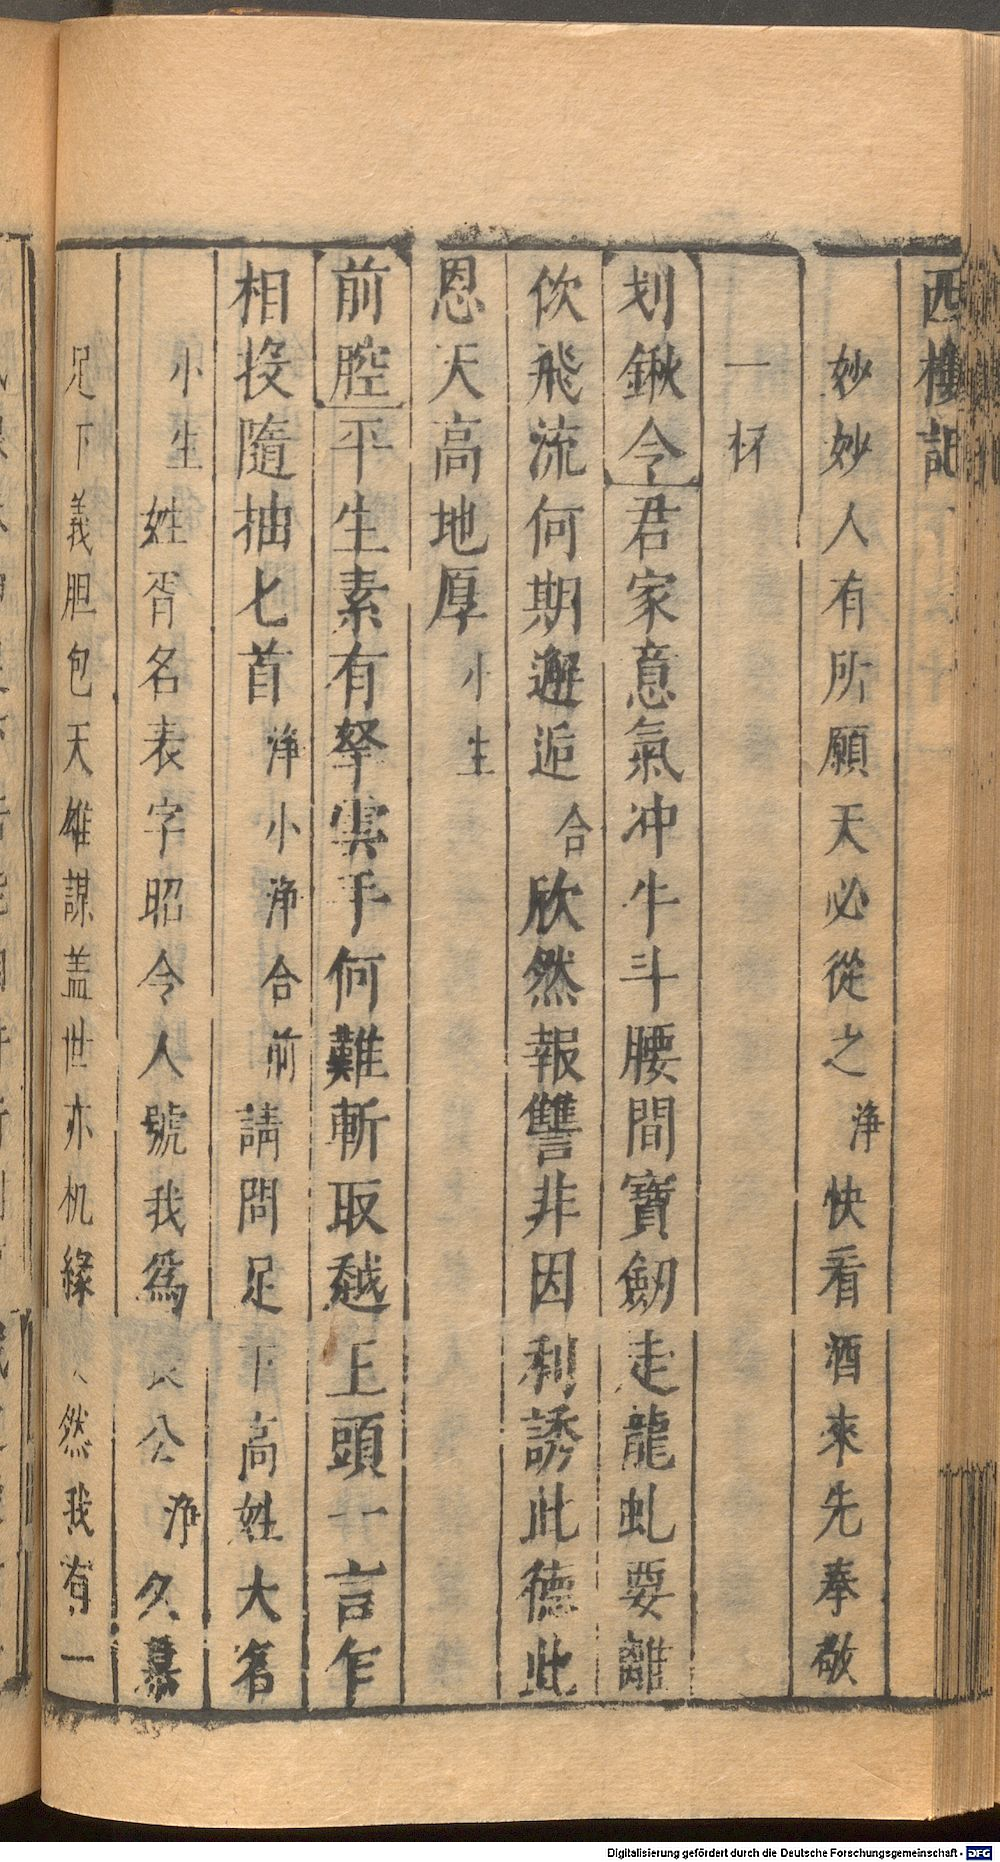 西樓記
妙妙人有所願天必從之淨快看酒來先奉敬
一杯
划鍬令君家意氣冲牛斗腰間寶劒走龍虬要離
佽飛流何期邂逅合欣然報讐非因利誘此德此
恩天高地厚小生
前腔平生素有拏雲手何難斬取越王頭一言乍
相投隨抽匕首淨小淨合前請問足下高姓大名
小生姓胥名表字昭令人號我為長公淨久慕
足下義胆包天雄謀盖世亦机緣然我有一
Digitalisierung gefördert durch die Deutsche Forschungsgemeinschaft - DFG